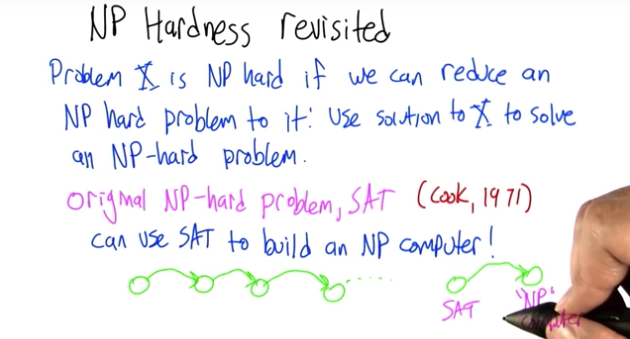 NP Hardness revisited
Problem X is NP hard if we can reduce an
NP hard problem to it: Use solution to X to solve
an NP-hard problem.
original NP-hard problem, SAT (Cook, 1971)
can use SAT to build an NP computer!
SAT "NP"